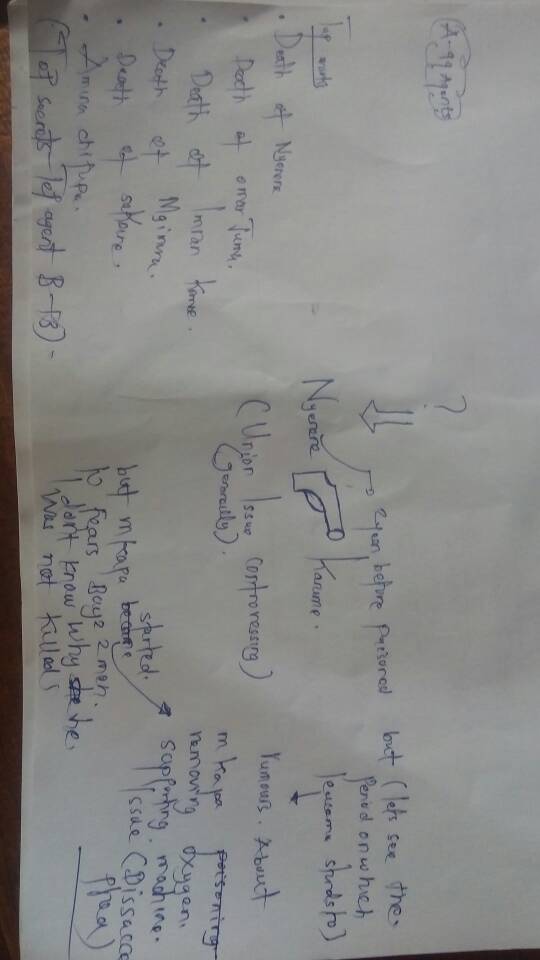 A-99 Agents
Top words
• Death of Nyerere
• Death of Omar Juma.
• Death of Imran Kombe.
• Death of Mgimwa.
• Death of Sokoine.
• Amina Chifupa.
(Top secrets - Tef agent B-13) -
?
2 years before poisoned
Nyerere
Karume.
(Union Issue controversing)
(generally).
but mkapa became
started.
to fears Bayz 2 men.
I don't know why he.
Was not killed
but (lets see the.
period on which
starts to)
rumours. About
mkapa poisoning
removing oxygen.
supporting. machine.
Issue